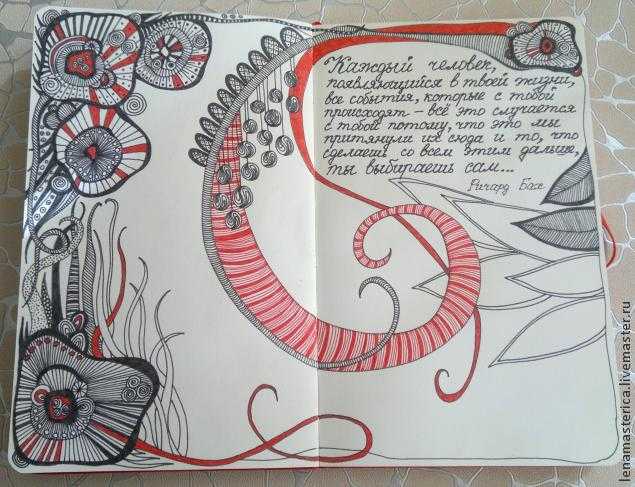 Каждый человек,
появляющийся в твоей жизни,
все события, которые с тобой
происходят – всё это случается
с тобой потому, что это мы
притянули их сюда и то, что
сделаешь со всем этим дальше,
ты выбираешь сам...
Ричард Бах
lenamasterica.livemaster.ru